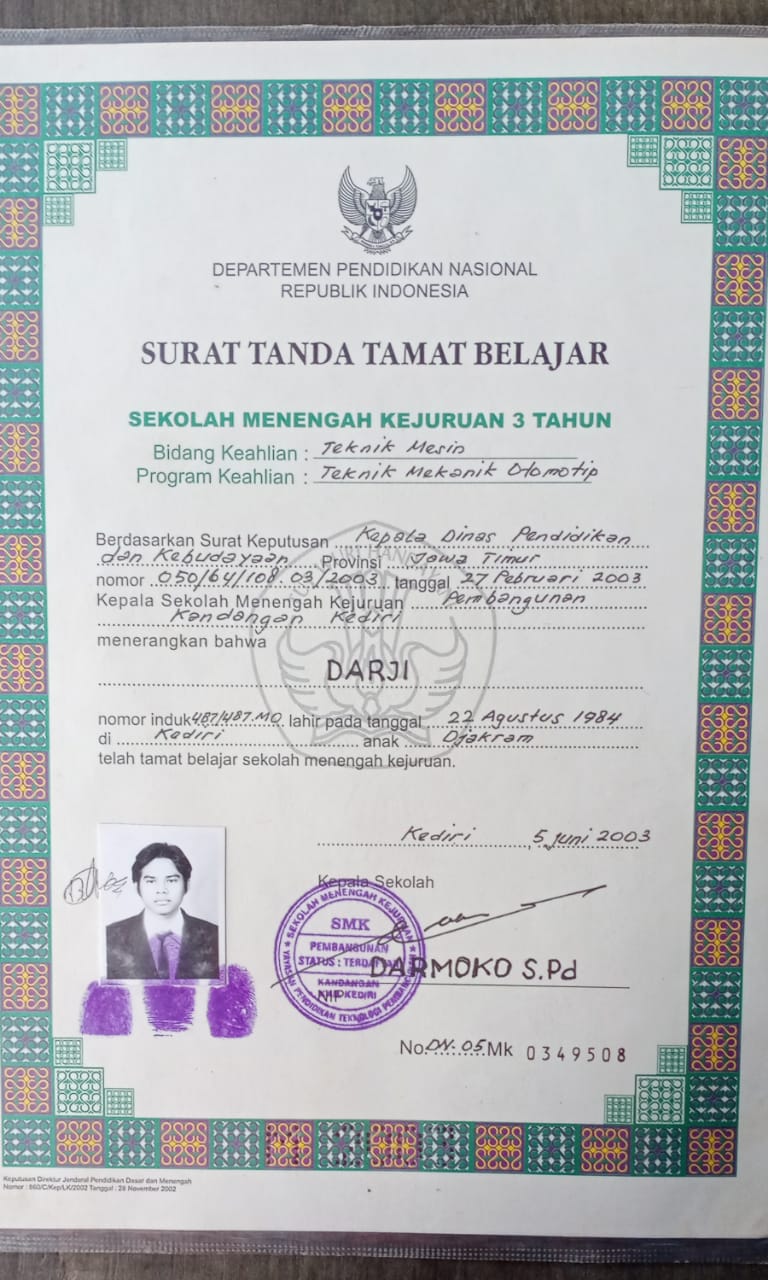 DEPARTEMEN PENDIDIKAN NASIONAL
REPUBLIK INDONESIA
SURAT TANDA TAMAT BELAJAR
SEKOLAH MENENGAH KEJURUAN 3 TAHUN
Bidang Keahlian : Teknik Mesin
Program Keahlian : Teknik Mekanik Otomotip
Berdasarkan Surat Keputusan Kepala Dinas Pendidikan
dan Kebudayaan Provinsi Jawa Timur
nomor 050/64/108.03/2003 tanggal 27 Pebruari 2003
Kepala Sekolah Menengah Kejuruan Pembangunan
Kandangan Kediri
menerangkan bahwa
DARJI
nomor induk 487/487.MO lahir pada tanggal 22 Agustus 1984
di Kediri anak Djakram
telah tamat belajar sekolah menengah kejuruan.
Kediri, 5 Juni 2003
Kepala Sekolah
SEKOLAH MENENGAH KEJURUAN
SMK
PEMBANGUNAN
STATUS : 
KANDANGAN
KAB KEDIRI
YAYASAN PENDIDIKAN TEKNOLOGI
DARMOKO S.Pd
NIP
No. DN. 05 Mk 0349508
Keputusan Direktur Jenderal Pendidikan Dasar dan Menengah
Nomor : 860/C/Kep/LK/2002 Tanggal : 28 November 2002